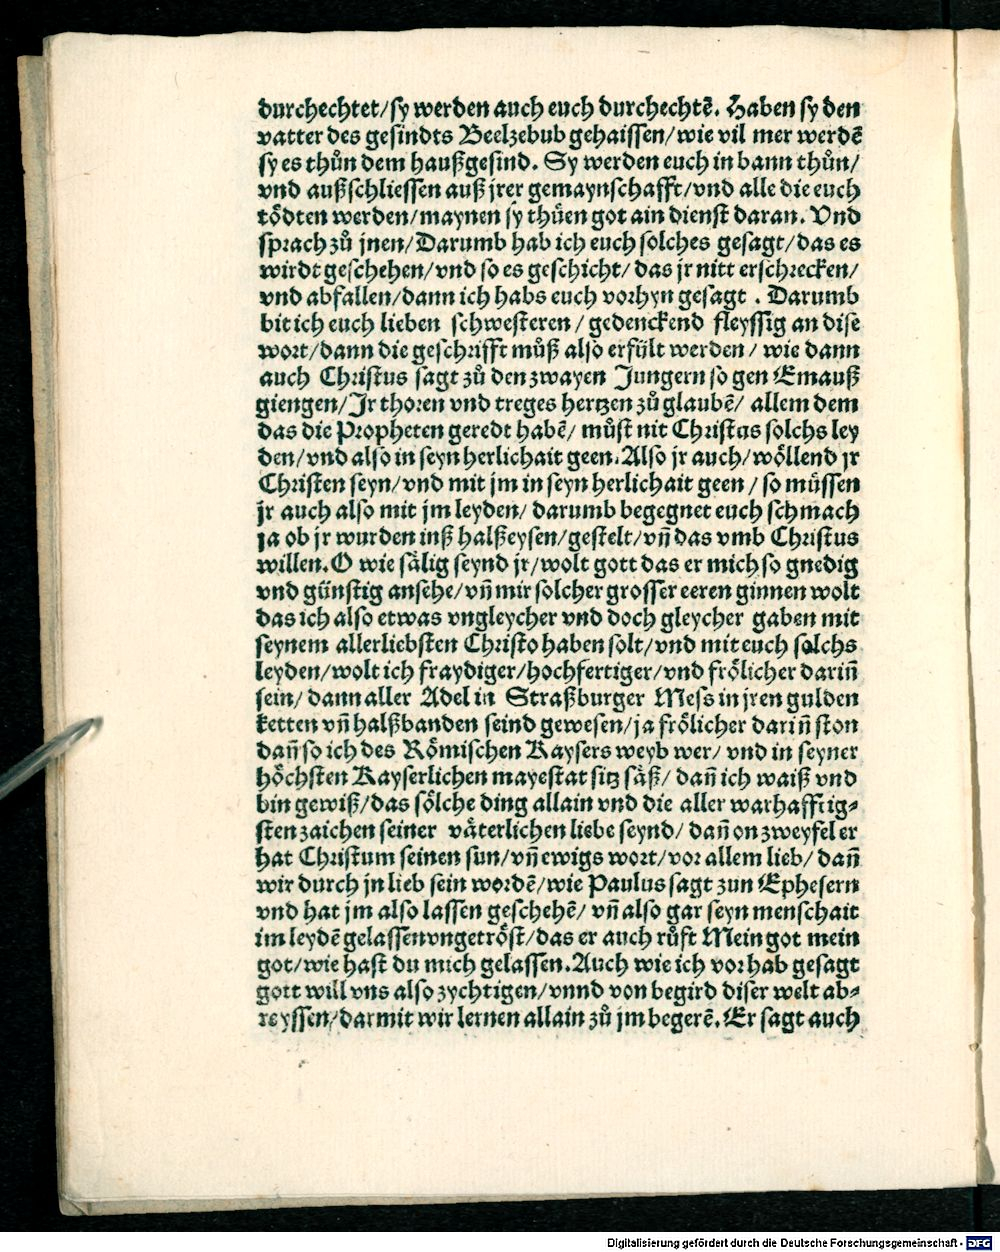 durchechtet/sy werden auch euch durchechtẽ. Haben sy den
vatter des gesindts Beelzebub gehaissen/wie vil mer werdẽ
sy es thůn dem haußgesind. Sy werden euch in bann thůn/
vnd außschliessen auß jrer gemaynschafft/vnd alle die euch
tödten werden/maynen sy thüen got ain dienst daran. Vnd
sprach zů jnen/Darumb hab ich euch solches gesagt/das es
wirdt geschehen/vnd so es geschicht/das jr nitt erschrecken/
vnd abfallen/dann ich habs euch vorhyn gesagt . Darumb
bit ich euch lieben schwesteren / gedenckend fleyssig an dise
wort/dann die geschrifft můß also erfült werden / wie dann
auch Christus sagt zů den zwayen Jungern so gen Emauß
giengen/Jr thoren vnd treges hertzen zů glaubẽ/ allem dem
das die Propheten geredt habẽ/ můst nit Christus solchs ley
den/vnd also in seyn herlichait geen. Also jr auch/wöllend jr
Christen seyn/vnd mit jm in seyn herlichait geen / so müssen
jr auch also mit jm leyden/ darumb begegnet euch schmach
ja ob jr wurden inß halßeysen/gestelt/vñ das vmb Christus
willen. O wie sälig seynd jr/wolt gott das er mich so gnedig
vnd günstig ansehe/vñ mir solcher grosser eeren ginnen wolt
das ich also etwas vngleycher vnd doch gleycher gaben mit
seynem allerliebsten Christo haben solt/vnd mit euch solchs
leyden/wolt ich fraydiger/hochfertiger/vnd frölicher dariñ
sein/ dann aller Adel in Straßburger Mess in jren gulden
ketten vñ halßbanden seind gewesen/ja frölicher dariñ ston
dañ so ich des Römischen Kaysers weyb wer/ vnd in seyner
höchsten Kayserlichen mayestat sitz säß/ dañ ich waiß vnd
bin gewiß/das sölche ding allain vnd die aller warhafftig⸗
sten zaichen seiner väterlichen liebe seynd/ dañ on zweyfel er
hat Christum seinen sun/vñ ewigs wort/vor allem lieb/ dañ
wir durch jn lieb sein wordẽ/wie Paulus sagt zun Ephesern
vnd hat jm also lassen geschehẽ/ vñ also gar seyn menschait
im leydẽ gelassen vngetröst/das er auch růft Mein got mein
got/wie hast du mich gelassen. Auch wie ich vor hab gesagt
gott will vns also zychtigen/vnnd von begird diser welt ab⸗
reyssen/darmit wir lernen allain zů jm begerẽ. Er sagt auch
Digitalisierung gefördert durch die Deutsche Forschungsgemeinschaft - DFG